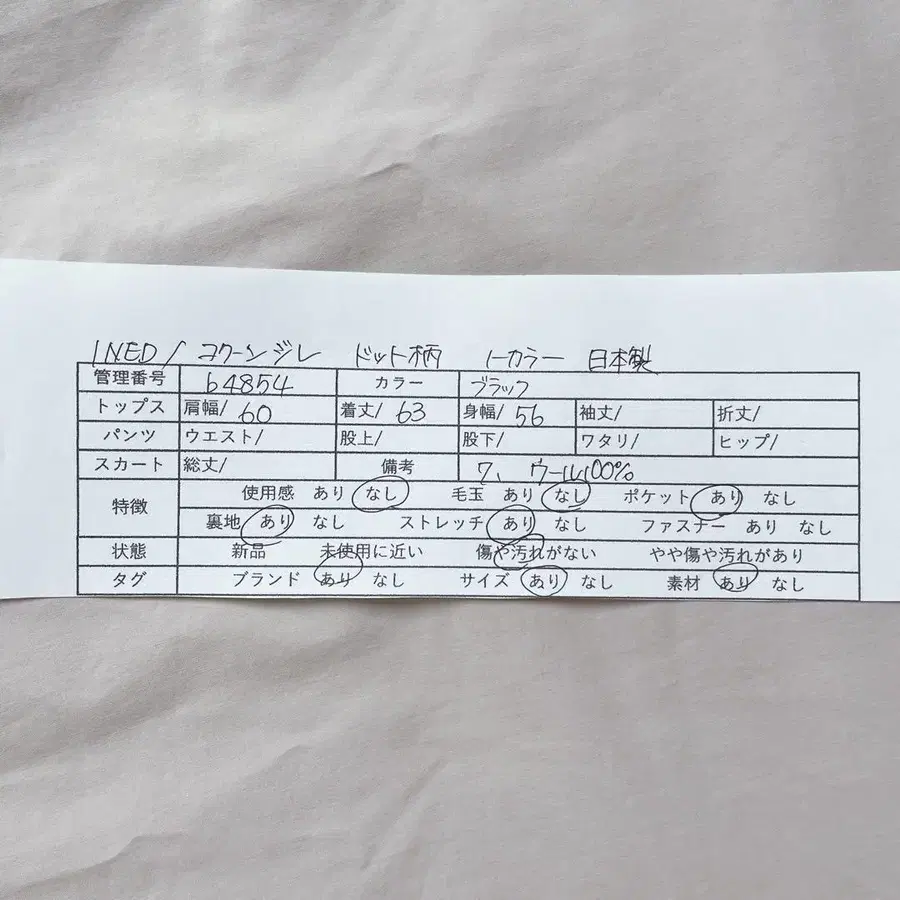 INED/ コクーンジレ ドット柄 ノーカラー 日本製
管理番号 b4854 カラー ブラック
トップス 肩幅/ 60 着丈/ 63 身幅/ 56 袖丈/ 折丈/
パンツ ウエスト/ 股上/ 股下/ ワタリ/ ヒップ/
スカート 総丈/ 備考 7、ウール100%
特徴 使用感 あり なし 毛玉 あり なし ポケット あり なし
裏地 あり なし ストレッチ あり なし ファスナー あり なし
状態 新品 未使用に近い 傷や汚れがない やや傷や汚れがあり
タグ ブランド あり なし サイズ あり なし 素材 あり なし